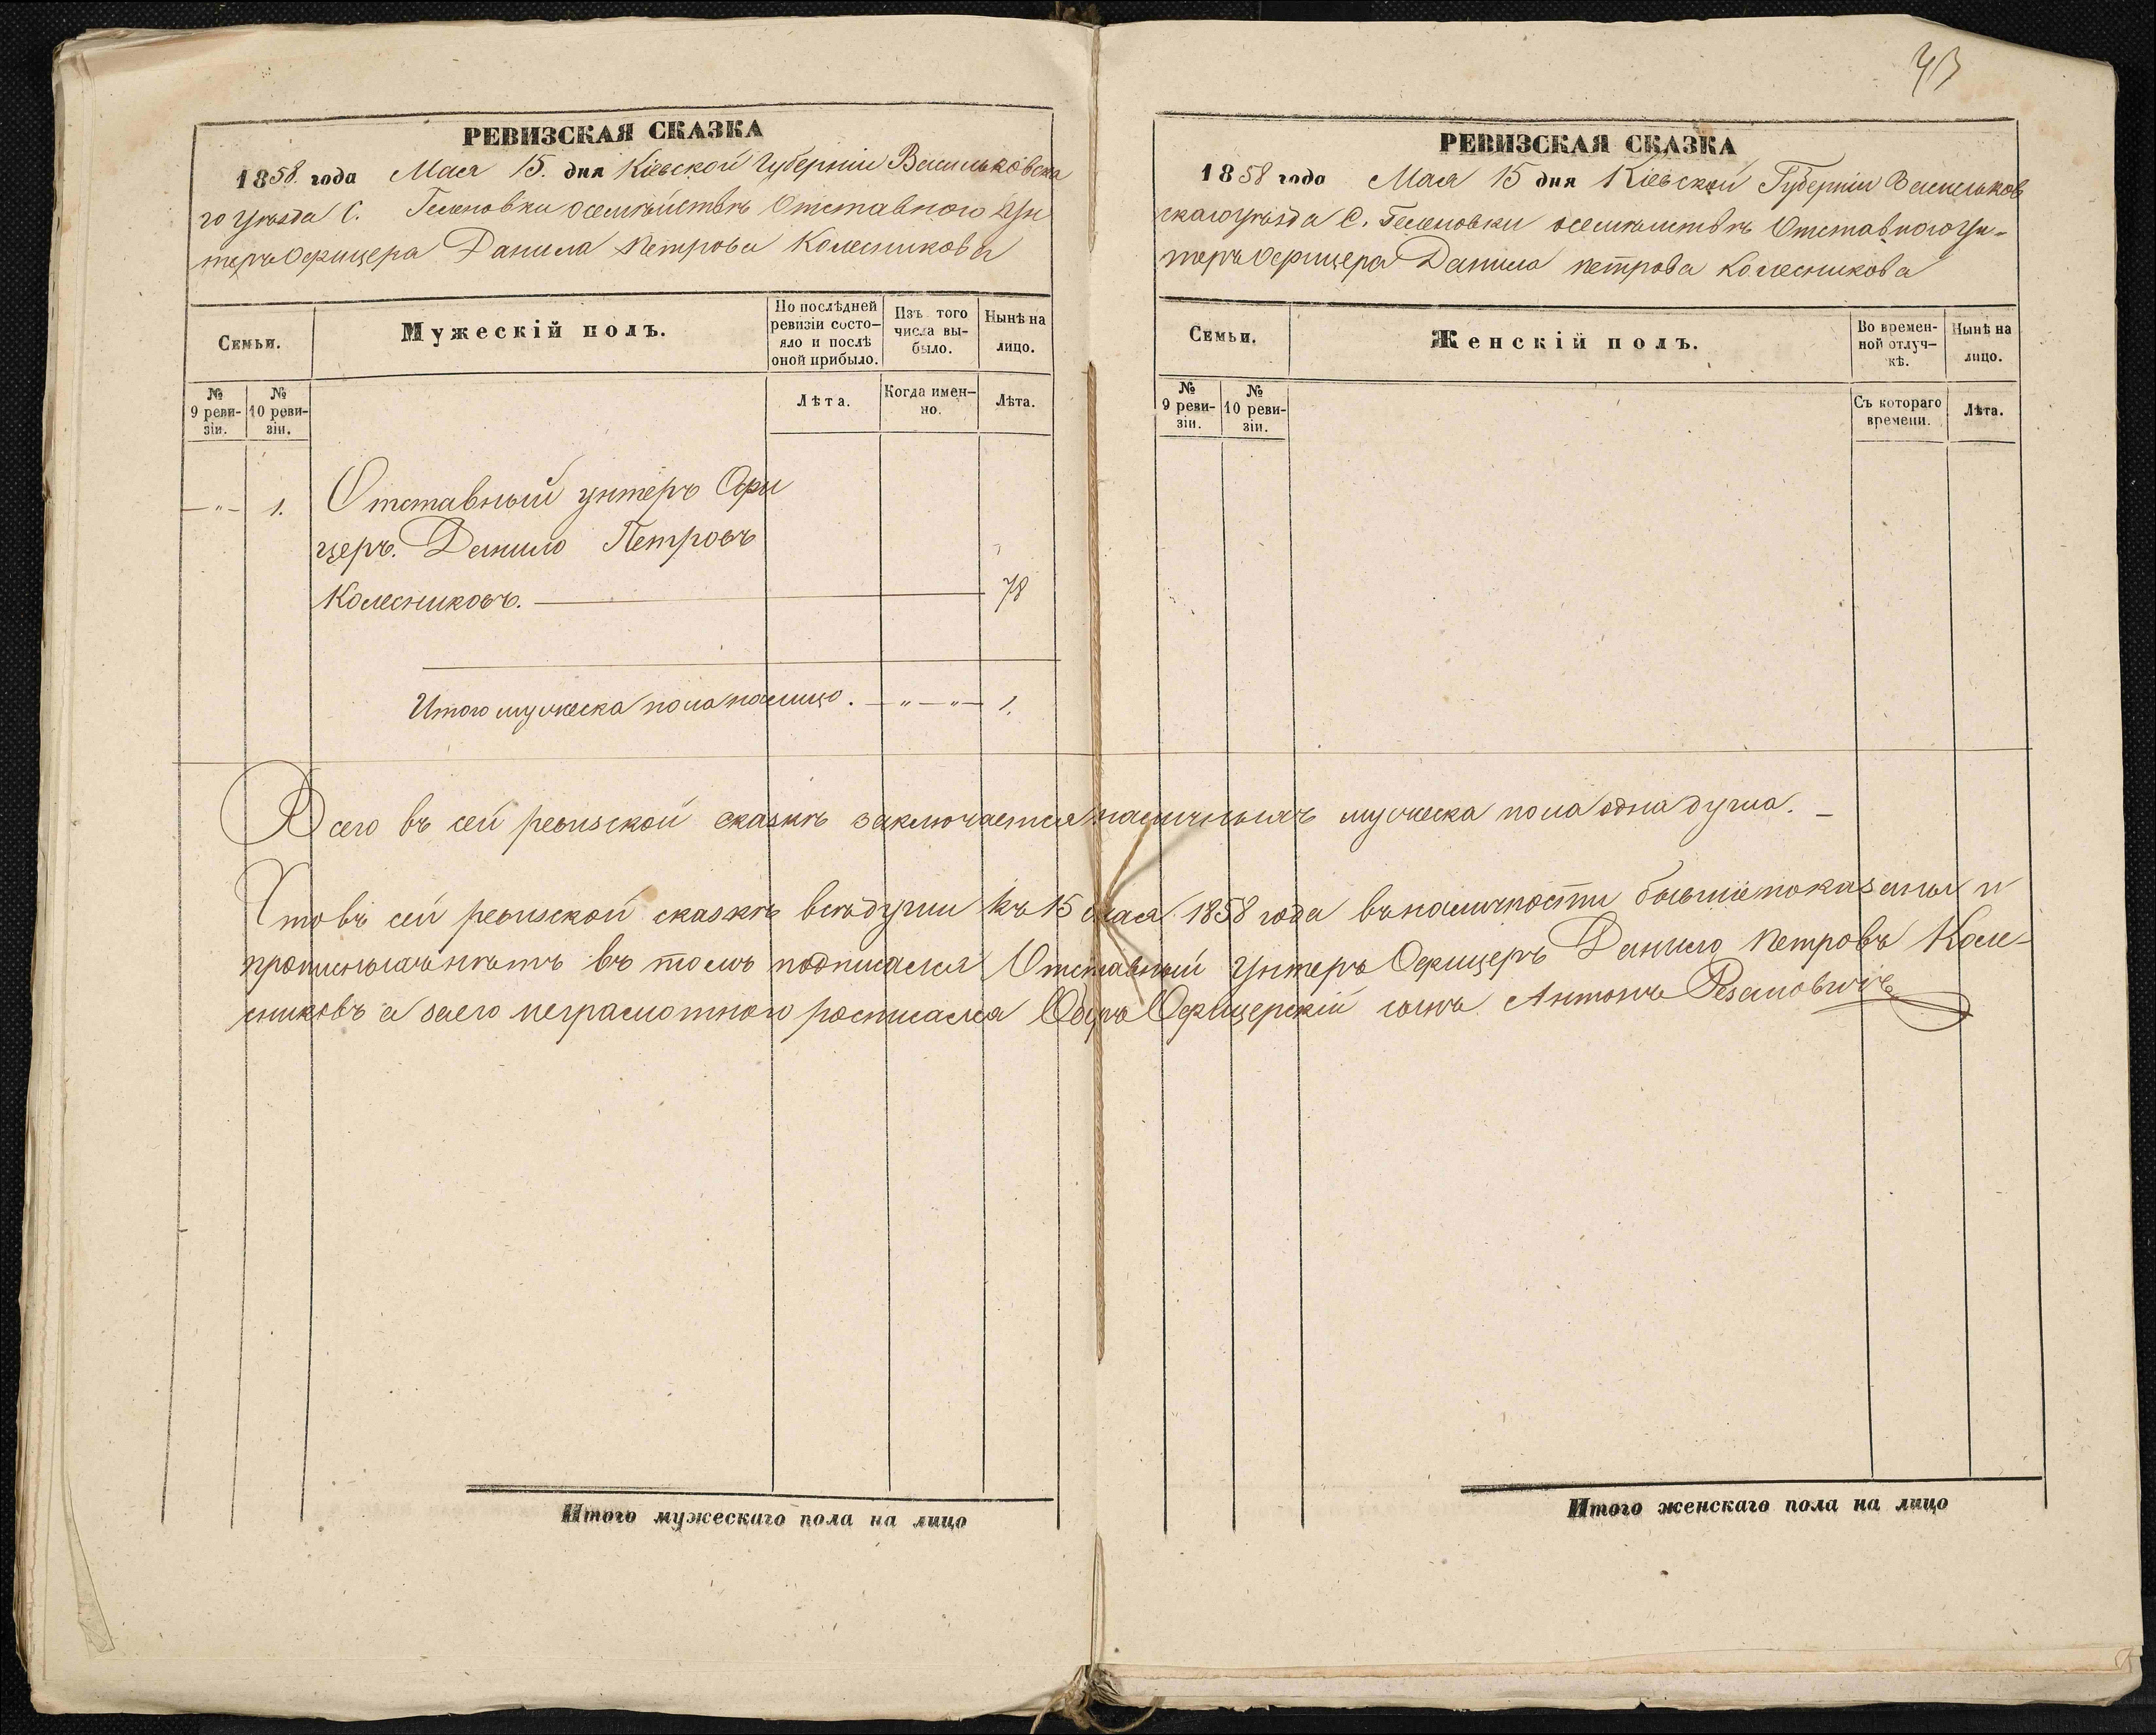 43
РЕВИЗСКАЯ СКАЗКА
1858. года Мая 15. дня Кіевской Губерніи Васильковска
го уѣзда С. Геленовки осемѣйствѣ Отставного Ун
теръ Офицера Данила Петрова Колесникова
Семьи.
Мужескій полъ.
По послѣдней ревизіи состо-
яло и послѣ оной прибыло.
Изъ того числа вы-
было.
Нынѣ на лицо.
№ 9 реви-
зіи.
№ 10 реви-
зіи.
Лѣта.
Когда имен-
но.
Лѣта.
— „ — 1. Отставный унтеръ Офи
церъ. Данило Петровъ
Колесниковъ. — 78
Итого мужеска пола налицо. — „ — „ — 1.
РЕВИЗСКАЯ СКАЗКА
1858 года Мая 15 дня Кіевской Губерніи Васильков
скаго уѣзда С. Геленовки осемѣйствѣ Отставного Ун-
теръ Офицера Данила Петрова Колесникова
Семьи.
Женскій полъ.
Во времен-
ной отлуч-
кѣ.
Нынѣ на лицо.
№ 9 реви-
зіи.
№ 10 реви-
зіи.
Съ котораго времени.
Лѣта.
Всего въ сей ревизской сказкѣ заключается наличныхъ мужеска пола одна душа. —
Что въ сей ревизской сказкѣ всѣ души къ 15 мая 1858 года въ наличности бывшіе показаны и
прописныхъ нѣтъ въ томъ подписался Отставный Унтеръ Офицеръ Данило Петровъ Коле-
сниковъ а за его неграмотного росписался Оберъ Офицерскій сынъ Антонъ
Итого мужескаго пола на лицо
Итого женскаго пола на лицо